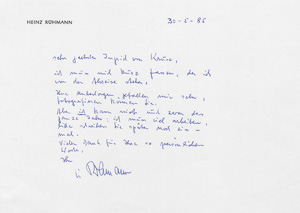 HEINZ RÜHMANN
30-5-86
sehr geehrte Ingrid von Kruse,
ich muss mich kurz fassen, da ich
vor der Abreise stehe.
Ihre gefallen mir sehr,
fotografieren können Sie.
kann nicht und zwar das
ganze Jahr. ich muss viel arbeiten,
bitte schreiben Sie später noch ein-
mal.
Vielen Dank für Ihre so persönlichen
Worte,
Ihr